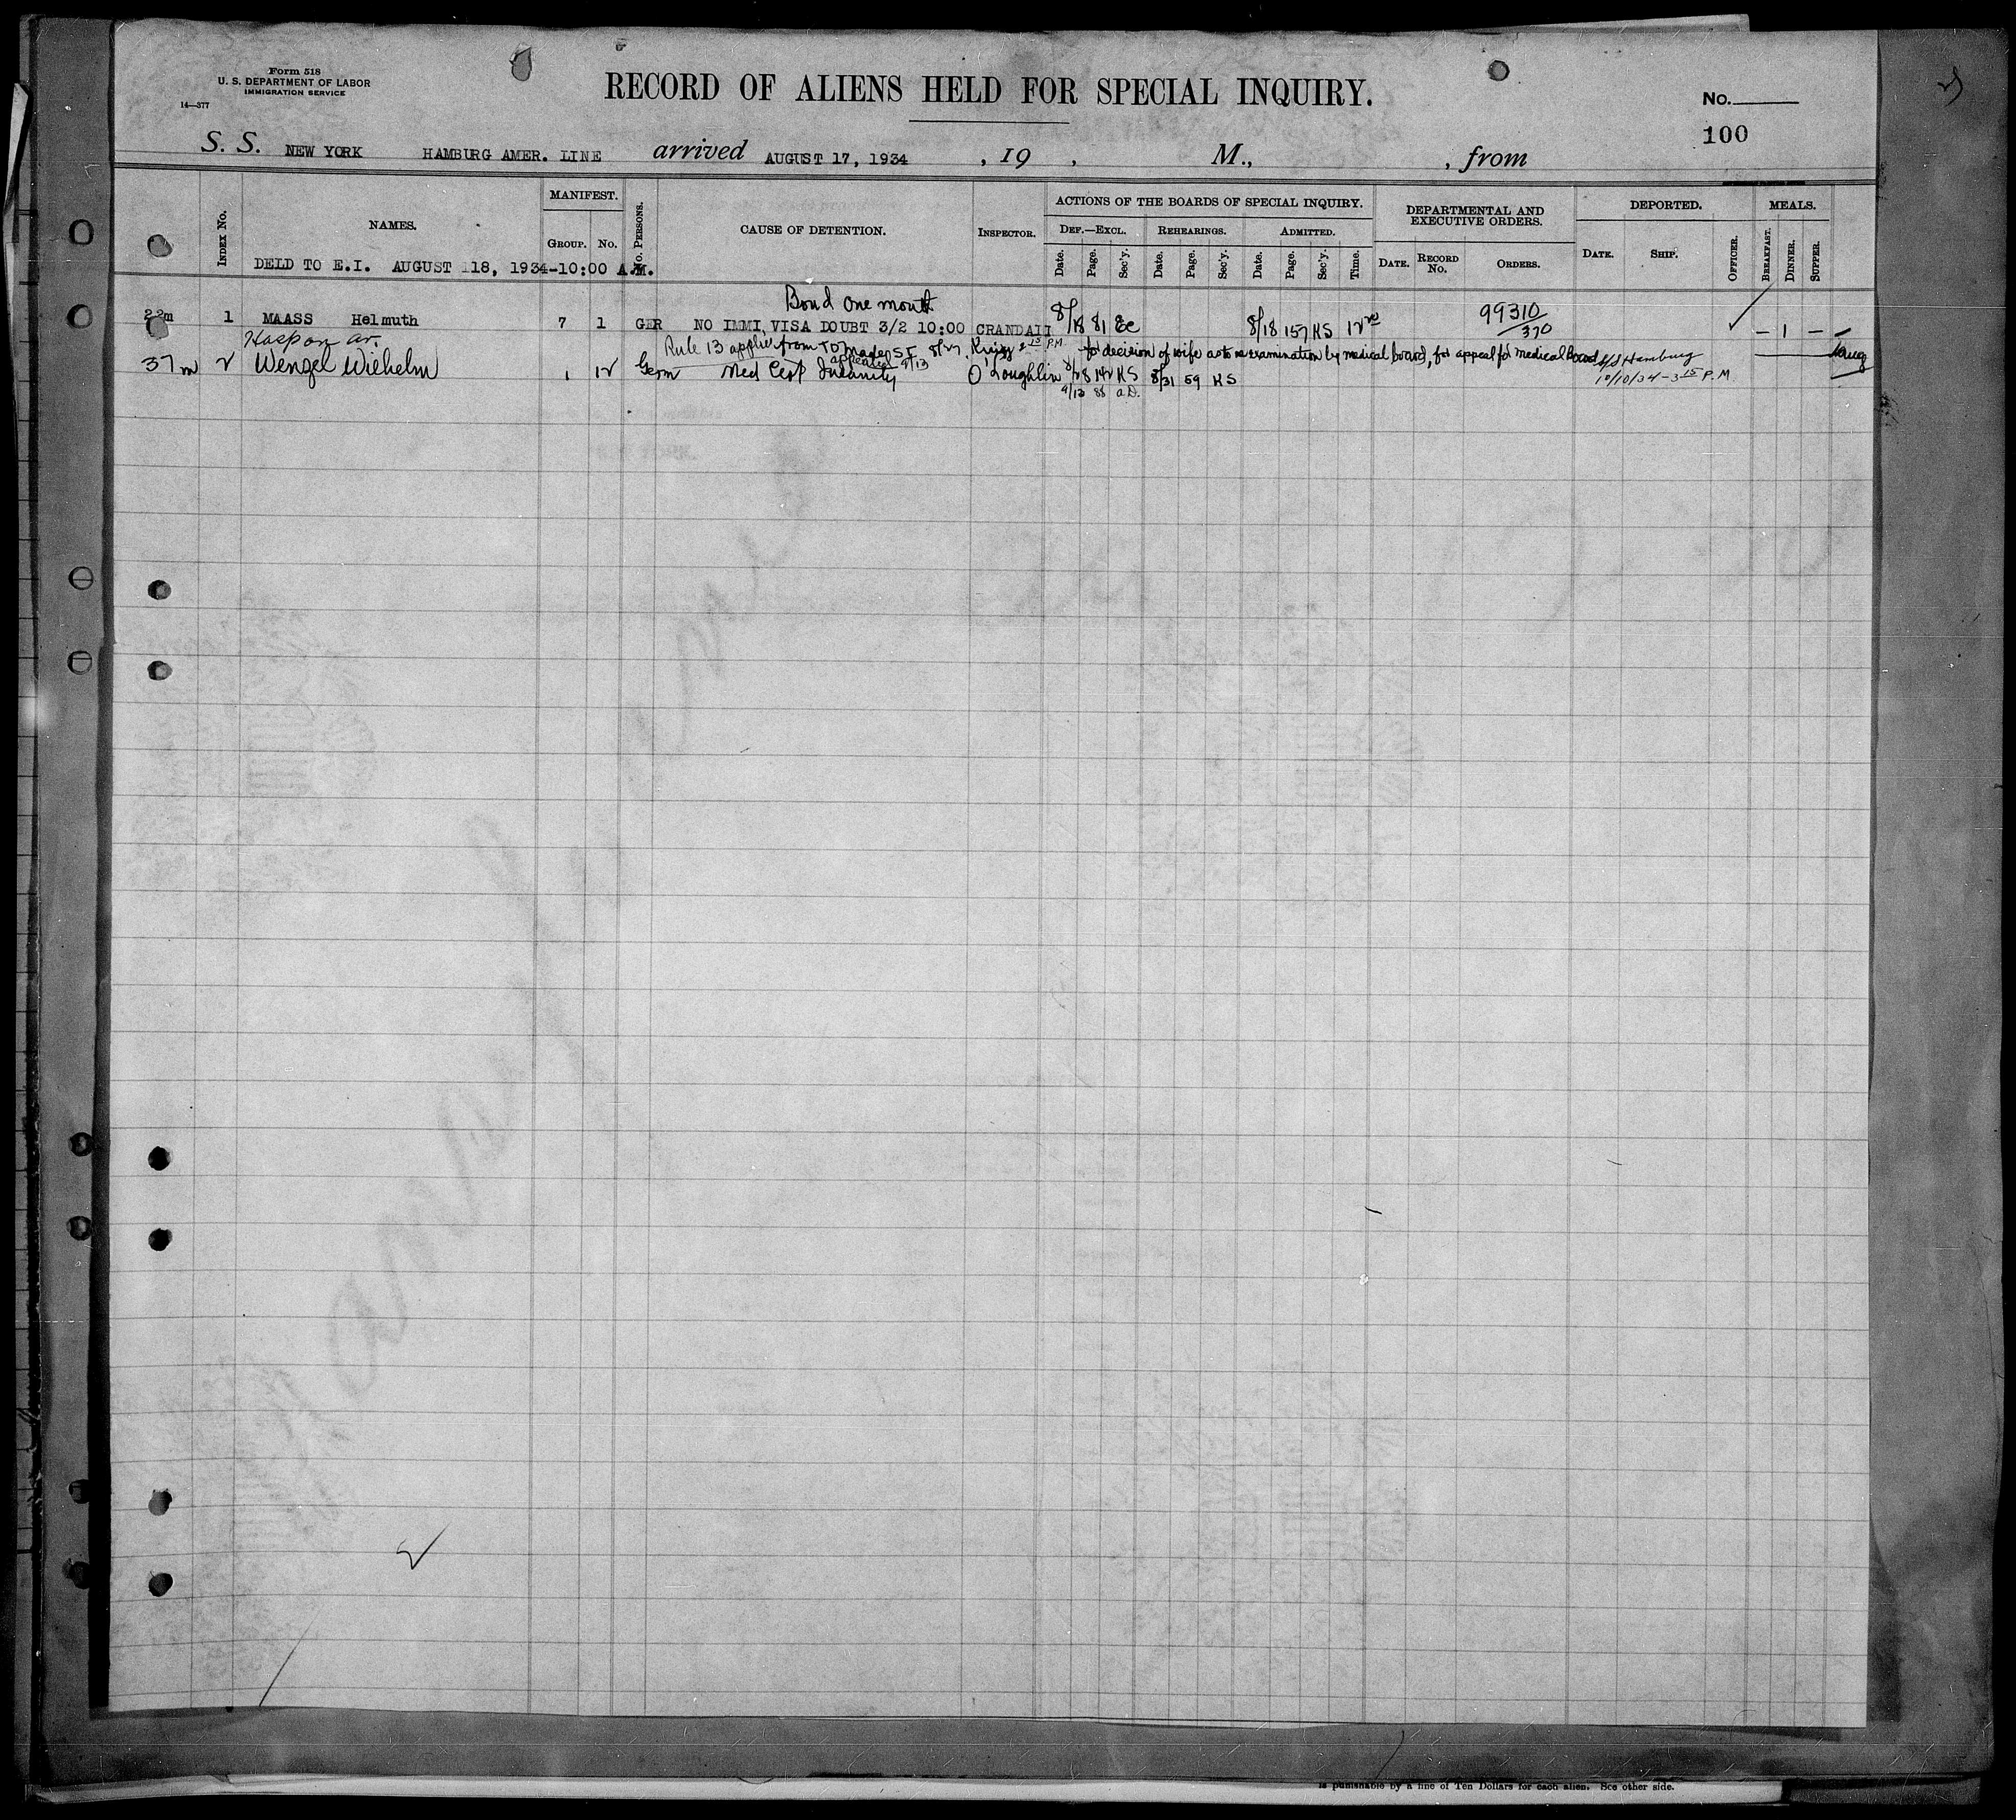 Form 518
U. S. DEPARTMENT OF LABOR
IMMIGRATION SERVICE
14—377
RECORD OF ALIENS HELD FOR SPECIAL INQUIRY.
No.
100
S. S. NEW YORK HAMBURG AMER. LINE arrived AUGUST 17, 1934 , 19 , M., , from
INDEX No.
NAMES.
MANIFEST.
GROUP. No.
No. PERSONS.
CAUSE OF DETENTION.
INSPECTOR.
ACTIONS OF THE BOARDS OF SPECIAL INQUIRY.
DEF.—EXCL. REHEARINGS. ADMITTED.
Date. Page. Sec'y. Date. Page. Sec'y. Date. Page. Sec'y. Time.
DEPARTMENTAL AND
EXECUTIVE ORDERS.
DATE. RECORD No. ORDERS.
DEPORTED.
DATE. SHIP. OFFICER.
MEALS.
BREAKFAST. DINNER. SUPPER.
DELD TO E.I. AUGUST 118, 1934-10:00 A.M.
Bond one month
22m 1 MAASS Helmuth 7 1 GER NO IMMI, VISA DOUBT 3/2 10:00 CRANDALL 8/18 81 Ec 8/18 157 KS 12 99310/370 — 1 —
Hosp on ar. Rule 13 applied from TD made SI 8/27 2 15 PM for decision of wife as to reexamination by medical board, for appeal for medical board S/S Hamburg
appealed 9/13
37m 2 Wenzel Wilhelm 1 12 Germ Med Cert Insanity O'Loughlin 8/28 142 KS 8/31 59 KS 10/10/34 - 3 15 P.M.
9/13 88 a D.
is punishable by a fine of Ten Dollars for each alien. See other side.